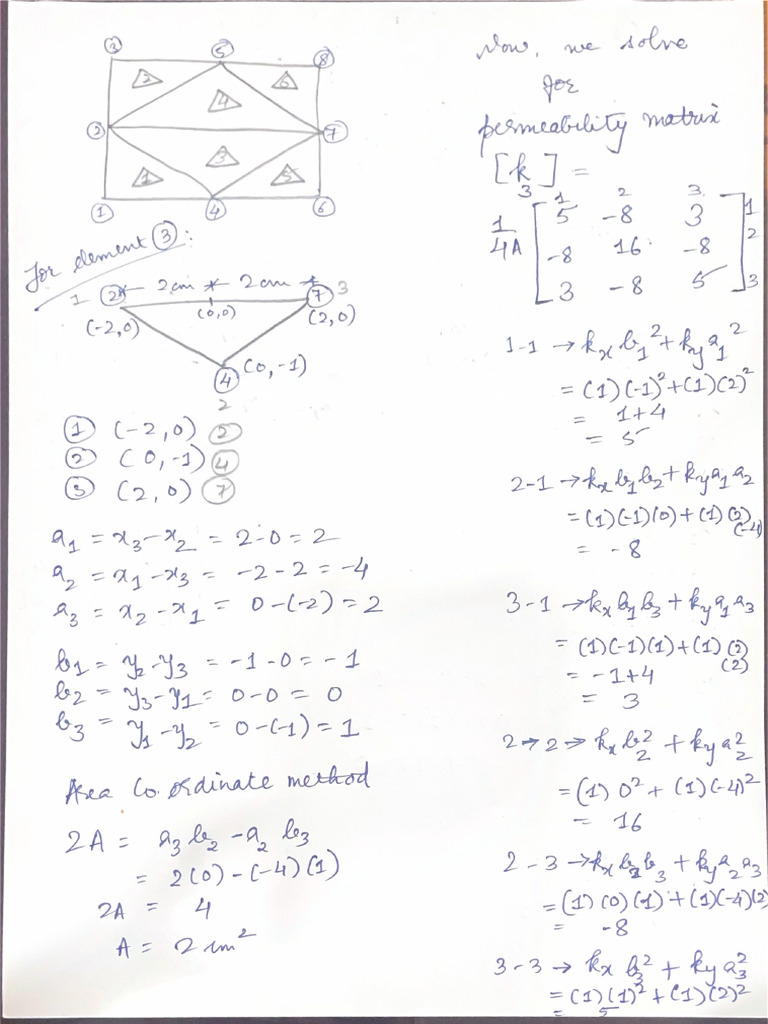 3 5 8
2 4 6
2 7
1 3 5
1 4 6
for element 3 :
1 2 2cm 2cm 7 3
(-2,0) (0,0) (2,0)
4 (0,-1)
2
1 (-2,0) 2
2 (0,-1) 4
3 (2,0) 7
a₁ = x₃-x₂ = 2-0 = 2
a₂ = x₁-x₃ = -2-2 = -4
a₃ = x₂-x₁ = 0-(-2) = 2
b₁ = y₂-y₃ = -1-0 = -1
b₂ = y₃-y₁ = 0-0 = 0
b₃ = y₁-y₂ = 0-(-1) = 1
Area Co.ordinate method
2A = a₃ b₂ - a₂ b₃
= 2(0) - (-4)(1)
2A = 4
A = 2 cm²
Now, we solve
for
permeability matrix
[k₃] =
1 2 3
1/4A [ 5 -8 3 ] 1
-8 16 -8 2
3 -8 5 3
1-1 → kₓ b₁² + k_y a₁²
= (1)(-1)² + (1)(2)²
= 1+4
= 5
2-1 → kₓ b₁ b₂ + k_y a₁ a₂
= (1)(-1)(0) + (1)(2)
(-4)
= -8
3-1 → kₓ b₁ b₃ + k_y a₁ a₃
= (1)(-1)(1) + (1)(2)
(2)
= -1+4
= 3
2→2 → kₓ b₂² + k_y a₂²
= (1) 0² + (1)(-4)²
= 16
2-3 → kₓ b₂ b₃ + k_y a₂ a₃
= (1)(0)(1) + (1)(-4)(2)
= -8
3-3 → kₓ b₃² + k_y a₃²
= (1)(1)² + (1)(2)²
= 5